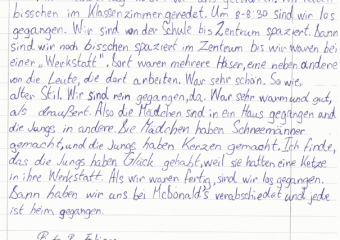 bisschen im Klassenzimmer geredet. Um 8-8:30 sind wir los
gegangen. Wir sind von der Schule bis Zentrum spaziert. Dann
sind wir noch bisschen spaziert im Zentrum bis wir waren bei
einer „Werkstatt". Dort waren mehrere Häser, eine neben andere
von die Leute, die dort arbeiten. War sehr schön. So wie,
alter Stil. Wir sind rein gegangen, da. War sehr warm und gut,
als draußen. Also die Mädchen sind in ein Haus gegangen und
die Jungs in andere. Die Mädchen haben Schneemänner
gemacht, und die Jungs haben Kerzen gemacht. Ich finde,
das die Jungs haben Glück gehabt, weil sie hatten eine Katze
in ihre Werkstatt. Als wir waren fertig, sind wir los gegangen.
Dann haben wir uns bei McDonald's verabschiedet und jede
ist heim gegangen.